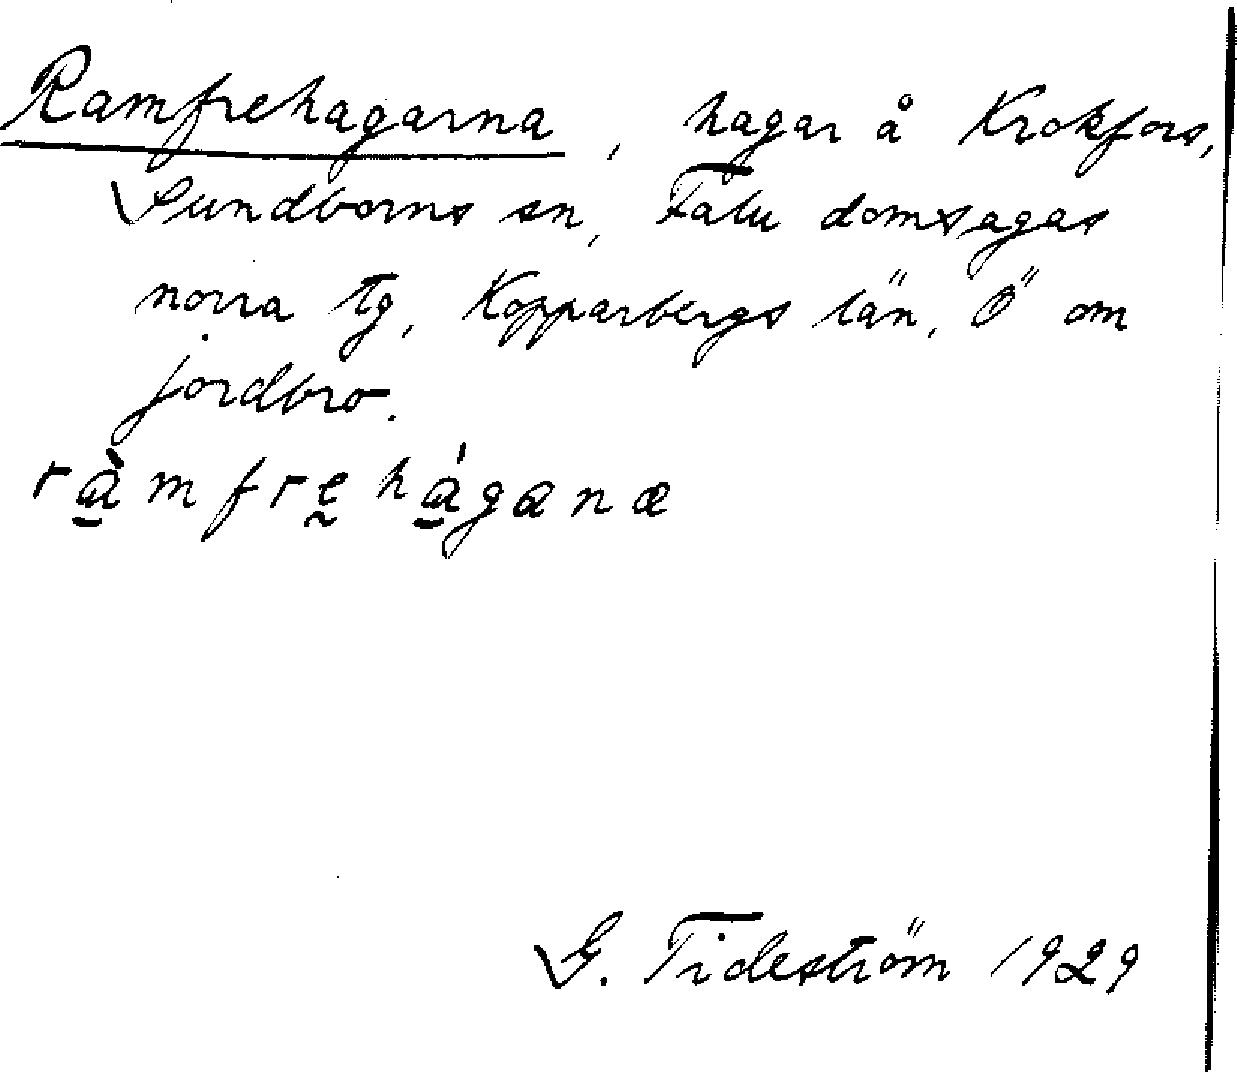 Ramfrehagarna, hagar å Krokfors,
Sundborns sn, Falu domsagas
norra tg, Kopparbergs län, Ö om
jordbro.
rà̱mfrḛhá̱ganæ
G. Tideström 1929